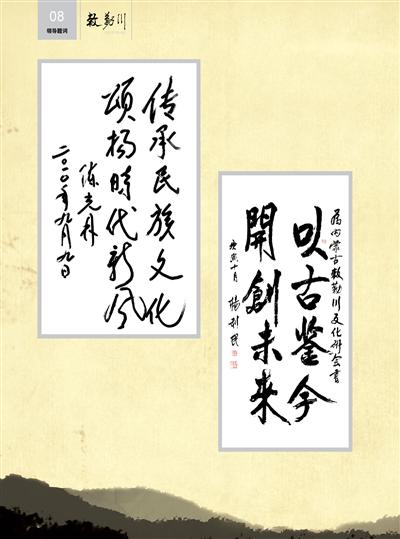 08
领导题词
敕勒川
传承民族文化
颂扬时代新风
陈光林
二〇一〇年九月九日
为内蒙古敕勒川文化研究会书
以古鉴今
開創未来
庚寅十月
杨利民